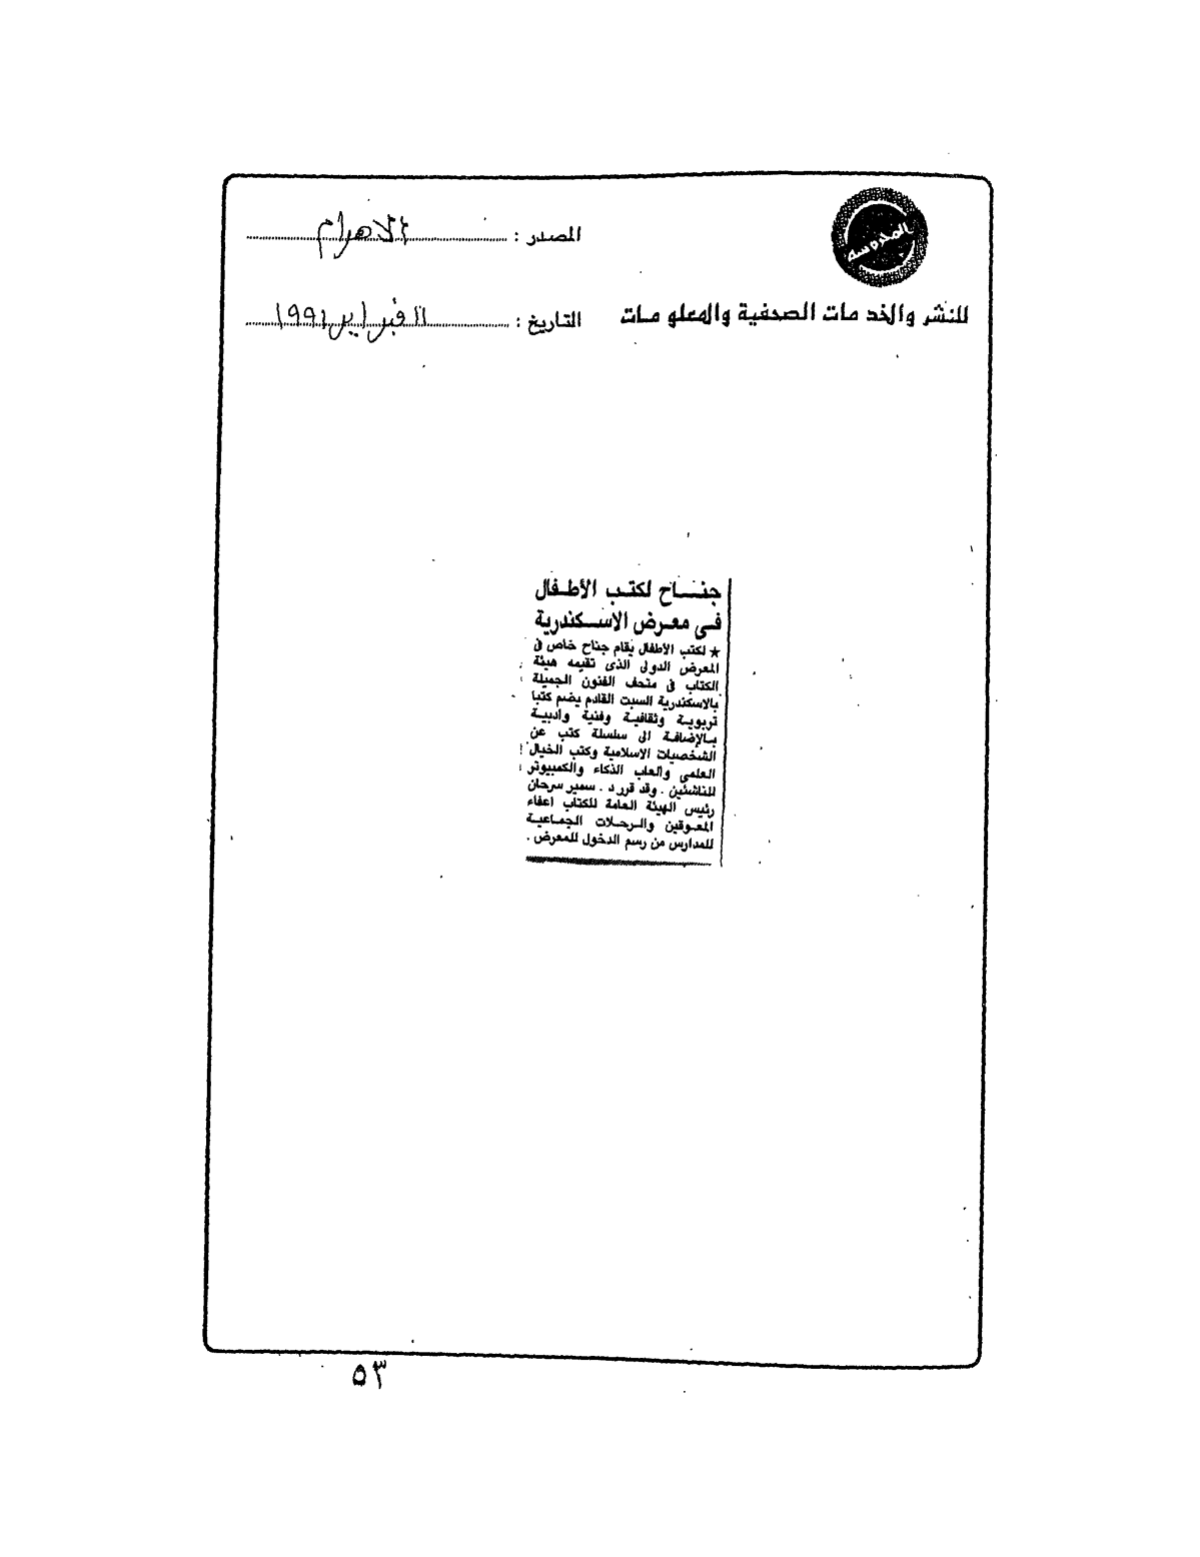 المحروسة
للنشر والخدمات الصحفية والمعلومات
المصدر : الاهرام
التاريخ : ١١ فبراير ١٩٩١
جنــاح لكتـب الأطـفال
فـى معـرض الاسـكندرية
★ لكتب الأطفال يقام جناح خاص فى
المعرض الدولى الذى تقيمه هيئة
الكتاب فى متحف الفنون الجميلة
بالاسكندرية السبت القادم يضم كتبا
تربويـة وثقافيـة وفنية وادبيـة
بـالإضافـة الى سلسلة كتب عن
الشخصيات الاسلامية وكتب الخيال
العلمى والعاب الذكاء والكمبيوتر
للناشئين . وقد قرر د . سمير سرحان
رئيس الهيئة العامة للكتاب اعفاء
المعـوقين والـرحـلات الجماعيـة
للمدارس من رسم الدخول للمعرض .
٥٣